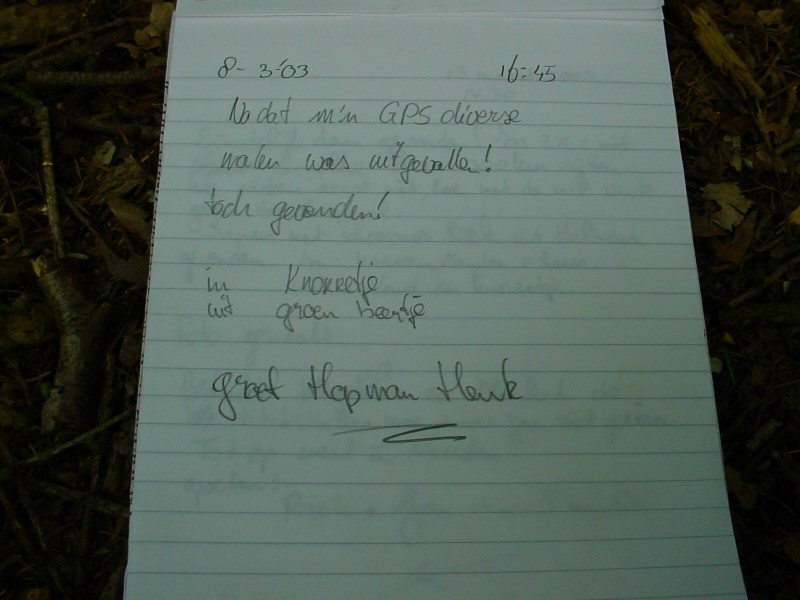 8-3-'03 16:45
Nadat m'n GPS diverse
malen was uitgevallen!
toch gevonden!
in Knorretje
uit groen beertje
groet Hopman Henk